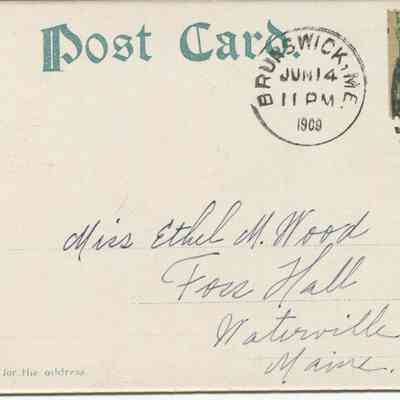 Post Card.
BRUNSWICK, ME.
JUN 14
11 PM
1909
Miss Ethel M. Wood
Foss Hall
Waterville
Maine.
for the address.